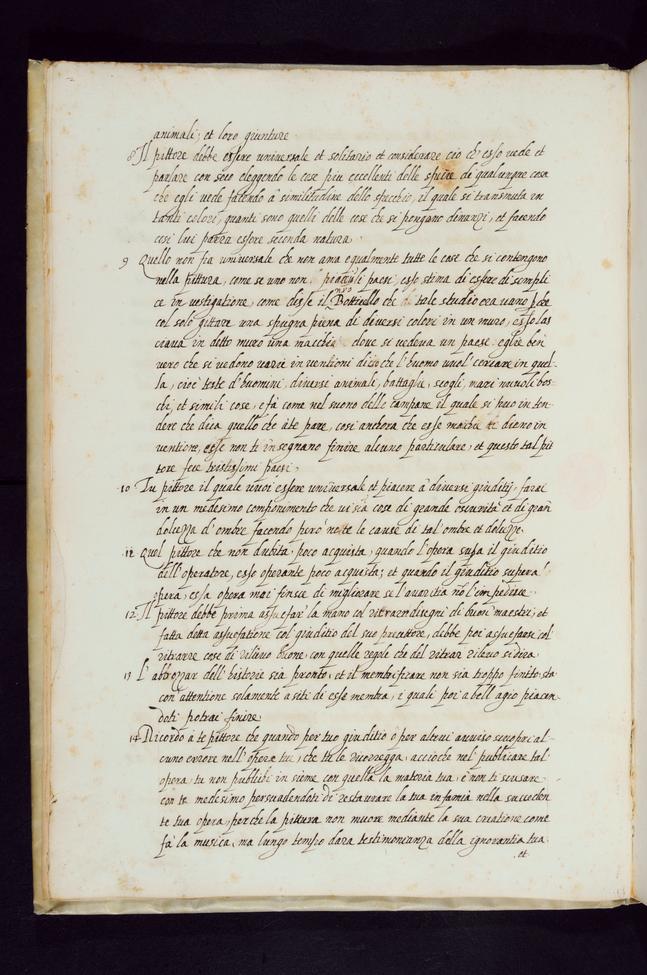 animali; et loro giunture
8 Il pittore debbe essere universale et solitario et considerare ciò ch' esso vede et
parlare con seco eleggendo le cose piu eccellenti delle spetie di qualunque cosa
che egli vede facendo à similitudine dello specchio, il quale si trasmuta in
tanti colori, quanti sono quelli delle cose che si pongano dinanzi, et facendo
cosi lui parrà essere seconda natura.
9 Quello non fia universale che non ama egualmente tutte le cose che si contengono
nella pittura, come se uno non piacciuli paesi esso stima di essere di sempli
ce in vestigatione, come disse il nro Botticello che tale studio era vano pche
col solo gittare una spugna piena di diversi colori in un muro, esso las
ciava in detto muro una macchia dove si vedeva un paese. egli è ben
vero che si vedono varie in ventioni di ciò che l'huomo vuol' cercare in quel-
la, cioè teste d'huomini, diversi animali, battaglie, scogli, mari nuvoli bos-
chi, et simili cose, e fà come nel suono delle campane il quale si puo in ten-
dere che dica quello che à te pare, cosi anchora che esse machie ti dieno in
ventione, esse non ti in segnano finire alcuno particulare, et questo tal pit
tore fece tristissimi paesi,
10 Tu pittore il quale vuoi essere universale et piacere à diversi giuditij farai
in un medesimo componimento che vi sia cose di grande oscurità et di gran
dolcezza d'ombre facendo però note le cause di tal' ombre et dolcezze.
11 Quel pittore che non dubita poco acquista, quando l'opera supa il giuditio
dell'operatore, esso operante poco acquista; et quando il giuditio supera l'
opera, essa opera mai finisce di migliorare se l'avaritia nol'impedisce.
12 Il pittore debbe prima assuefar' la mano col ritrar disegni di buon' maestri; et
fatta detta assuefatione col giuditio del suo precettore, debbe poi assuefarsi col'
ritrarre cose di rilievo buone, con quelle regole che del ritrar rilievo si dira
13 L' abbozzar dell'historie sia pronto, et il membrificare non sia troppo finito, sta
con'attentione solamente a siti di esse membra, i quali poi a bell'agio piacen-
doti potrai finire
14 Ricordo à te pittore che quando per tuo giuditio ò per altrui avviso scuopri al-
cuno errore nell'opere tue, che tu le ricorregga, accioche nel publicare tal'
opera tu non publichi in sieme con quella la materia tua; e non ti scusare
con te medesimo persuadendoti di restaurare la tua infamia nella succeden
te tua opera, perche la pittura non muore mediante la sua creatione come
fà la musica, ma lungo tempo darà testimonianza della ignorantia tua
et